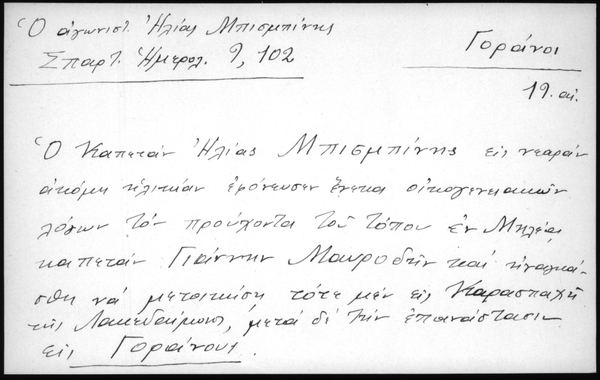 Ὁ ἀγωνιστ. Ἠλίας Μπισμπίνης
Σπαρτ. Ἡμερολ. 9, 102
Γοράνοι
19. αἰ.
Ὁ Καπετάν Ἠλίας Μπισμπίνης εἰς νεαράν
ἀκόμη ἡλικίαν ἐφόνευσεν ἕνεκα οἰκογενειακῶν
λόγων τόν προὔχοντα τοῦ τόπου ἐν Μηλέᾳ
καπετάν Γιάννην Μαυροδῆν καί ἠναγκά
σθη νά μετοικήσῃ τότε μέν εἰς Καρασπαχῆ
τῆς Λακεδαίμονος, μετά δέ τήν ἐπανάστασιν
εἰς Γοράνους.